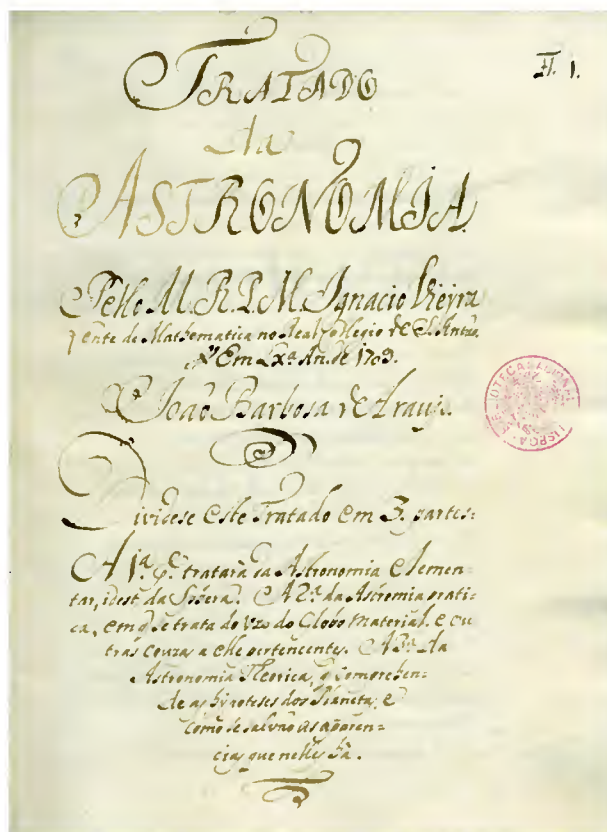 H. 1.
TRATADO
da
ASTRONOMIA
Pello M.R.P.M. Ignacio Vieyra
Lente de Mathematica no Real Collegio de S. Antão
Em Lxª An. de 1709.
João Barbosa de Araujo.
Dividese este Tratado em 3. partes:
A 1ª. q̃ tratarà da Astronomia Elemen-
tar, idest, da Sphera. A 2ª. da Astromia prati-
ca, em q̃ se trata do vzo do Globo material, e ou
tras couzas a elle pertencentes. A 3ª. da
Astronomia Theorica, q̃ comprehen-
de as hipoteses dos Planetas, e
como se salvão as apparen-
cias que nelles há.
BIBLIOTECA NACIONAL
LISBOA